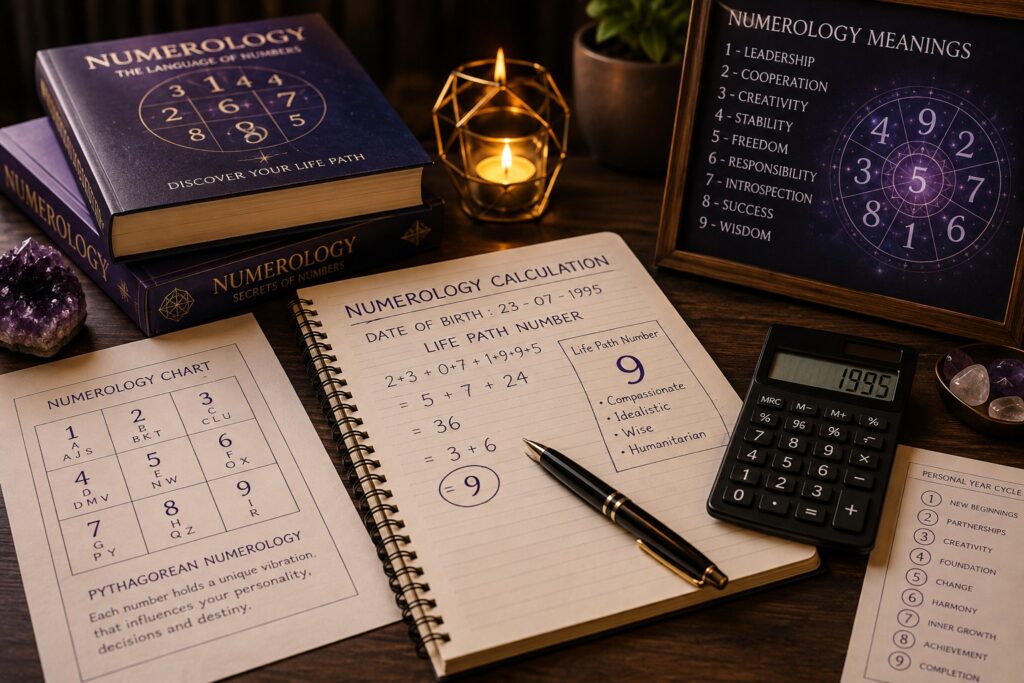 NUMEROLOGY
THE LANGUAGE OF NUMBERS
3 1 4 4
2 6 7
8 8 5
DISCOVER YOUR LIFE PATH
NUMEROLOGY
NUMEROLOGY
SECRETS OF NUMBERS
NUMEROLOGY MEANINGS
1 - LEADERSHIP
2 - COOPERATION
3 - CREATIVITY
4 - STABILITY
5 - FREEDOM
6 - RESPONSIBILITY
7 - INTROSPECTION
8 - SUCCESS
9 - WISDOM
4 9 2
3 5 7
8 1 6
NUMEROLOGY CHART
1 2 3
A B C
AJS BKT CLU
4 5 6
D E F
DMV NW OX
7 8 9
G H I
PY QZ R
PYTHAGOREAN NUMEROLOGY
Each number holds a unique vibration.
that influences your personality,
decisions and destiny.
NUMEROLOGY CALCULATION
DATE OF BIRTH : 23 - 07 - 1995
LIFE PATH NUMBER
2+3 + 0+7 + 1+9+9+5
= 5 + 7 + 24
= 36
= 3 + 6
= 9
Life Path Number
9
• Compassionate
• Idealistic
• Wise
• Humanitarian
1995
MRC M− M+ √
% % 9 % −
7 8 9 ×
4 5 6 −
1 2 3
0 · = +
PERSONAL YEAR CYCLE
1 NEW BEGINNINGS
2 PARTNERSHIPS
3 CREATIVITY
4 FOUNDATION
5 CHANGE
6 HARMONY
7 INNER GROWTH
8 ACHIEVEMENT
9 COMPLETION